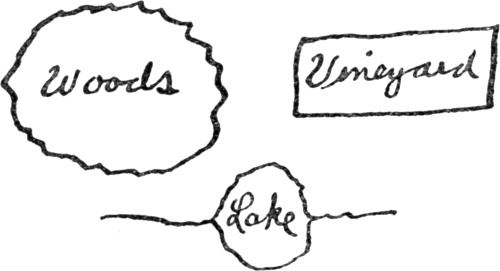 Woods
Vineyard
Lake